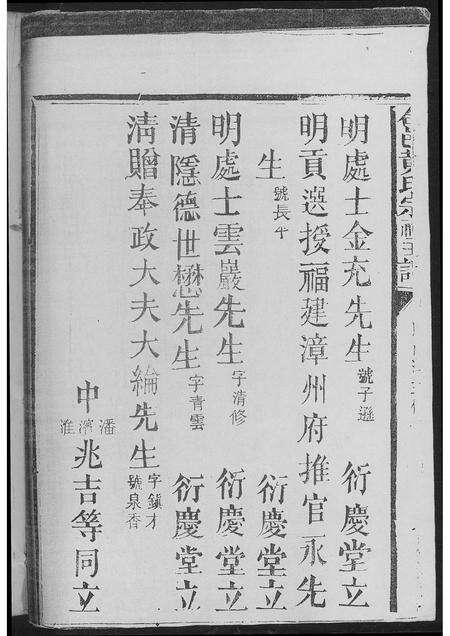 明處士金充先生 號子遜 衍慶堂立
明貢選授福建漳州府推官永先
生 號長平 衍慶堂立
明處士雲巖先生 字清修 衍慶堂立
清隱德世懋先生 字青雲 衍慶堂立
清贈奉政大夫大綸先生 字鎮才 號泉香
潘濱淮中兆吉等同立